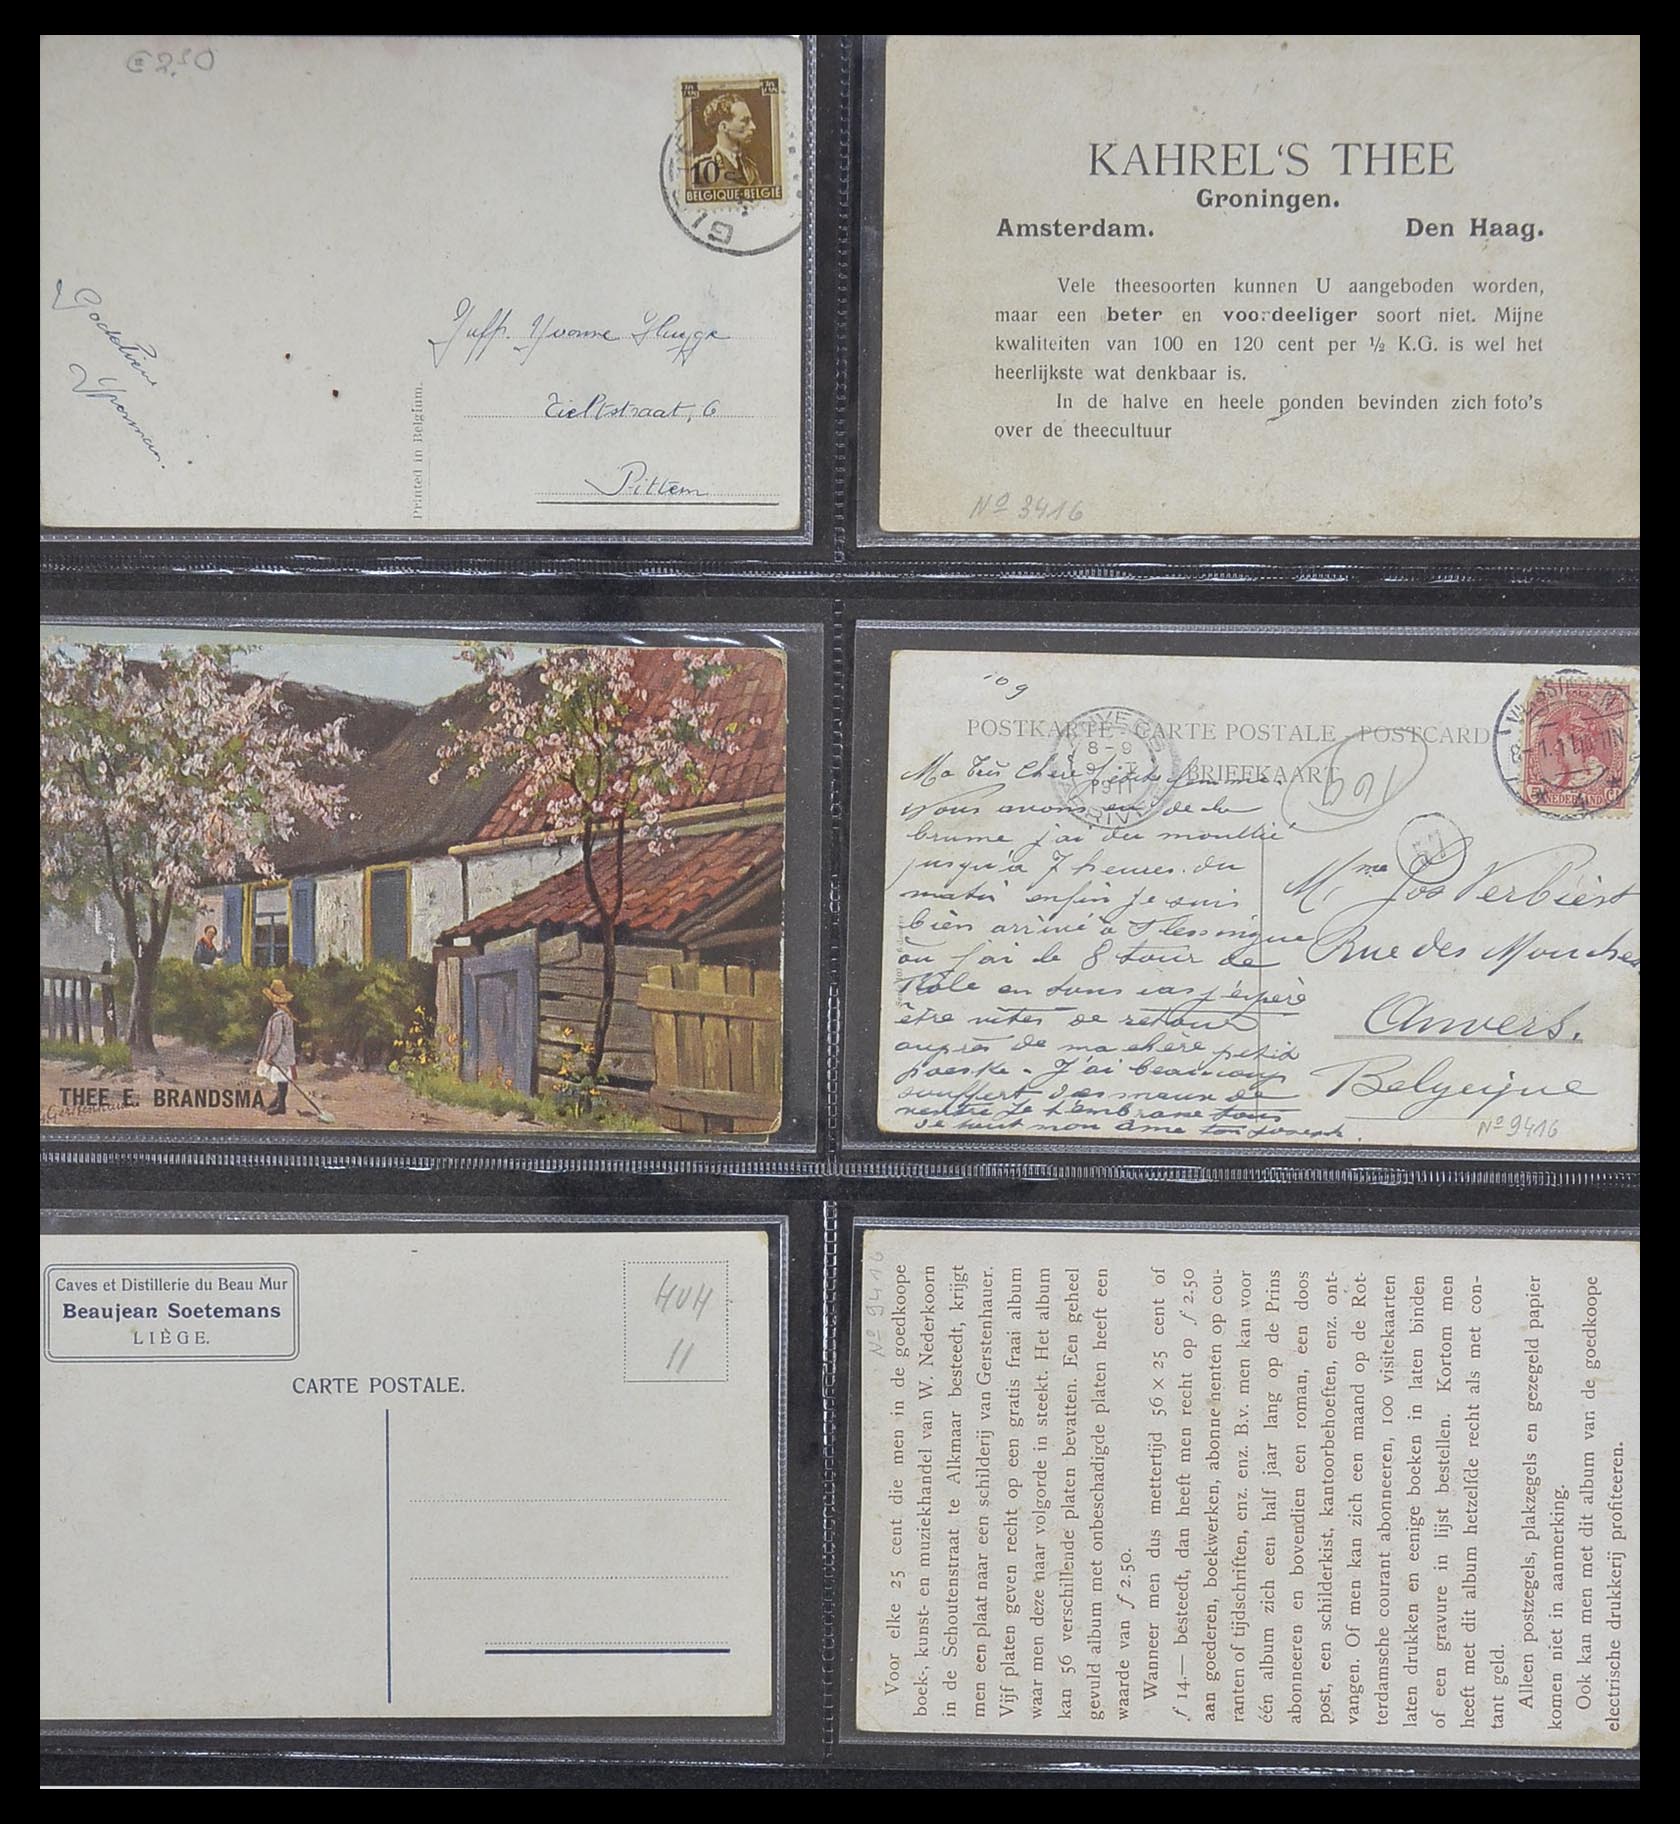 € 2,50
10c
BELGIQUE-BELGIË
Godelieve
Ypermans.
Juffr. Yvonne
Tieltstraat, 6
Pittem
Printed in Belgium.
KAHREL'S THEE
Groningen.
Amsterdam. Den Haag.
Vele theesoorten kunnen U aangeboden worden,
maar een beter en voordeeliger soort niet. Mijne
kwaliteiten van 100 en 120 cent per ½ K.G. is wel het
heerlijkste wat denkbaar is.
In de halve en heele ponden bevinden zich foto's
over de theecultuur
No 3416
THEE E. BRANDSMA
109
POSTKARTE - CARTE POSTALE - POSTCARD
BRIEFKAART
8-9
1911
NEDERLAND
Ma très chère petite femme.
Nous avons eu de la
brume j'ai du mouillé
jusqu'à 7 heures du
matin enfin je suis
bien arrivé à Flessingue
ou j'ai le 8 tour de
Rôle en tous cas j'espère
être vites de retour
auprès de ma chère petite
poeske. J'ai beaucoup
souffert des maux de
ventre Je t'embrasse tous
de tout mon âme ton Joseph.
Mme Jos Verbiest
Rue des Mouches
Anvers.
Belgique
No 9416
Caves et Distillerie du Beau Mur
Beaujean Soetemans
LIÈGE.
HVH
11
CARTE POSTALE.
No 9416
Voor elke 25 cent die men in de goedkoope
boek-, kunst- en muziekhandel van W. Nederkoorn
in de Schoutenstraat te Alkmaar besteedt, krijgt
men een plaat naar een schilderij van Gerstenhauer.
Vijf platen geven recht op een gratis fraai album
waar men deze naar volgorde in steekt. Het album
kan 56 verschillende platen bevatten. Een geheel
gevuld album met onbeschadigde platen heeft een
waarde van f 2.50.
Wanneer men dus mettertijd 56 × 25 cent of
f 14.— besteedt, dan heeft men recht op f 2.50
aan goederen, boekwerken, abonnementen op cou-
ranten of tijdschriften, enz. enz. B.v. men kan voor
één album zich een half jaar lang op de Prins
abonneeren en bovendien een roman, een doos
post, een schilderkist, kantoorbehoeften, enz. ont-
vangen. Of men kan zich een maand op de Rot-
terdamsche courant abonneeren, 100 visitekaarten
laten drukken en eenige boeken in laten binden
of een gravure in lijst bestellen. Kortom men
heeft met dit album hetzelfde recht als met con-
tant geld.
Alleen postzegels, plakzegels en gezegeld papier
komen niet in aanmerking.
Ook kan men met dit album van de goedkoope
electrische drukkerij profiteeren.